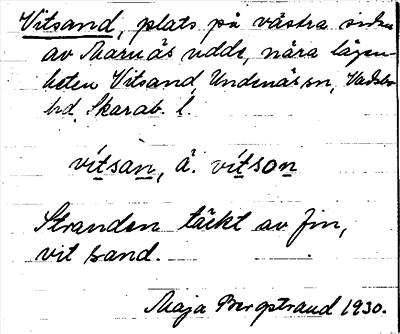 Vitsand, plats på västra sidan
av Marnäs udde, nära lägen-
heten Vitsand, Undenäs sn, Vadsbo
hd, Skarab. l.
vítsan, ä. vítson
Stranden täckt av fin,
vit sand.
Maja Bergstrand 1930.